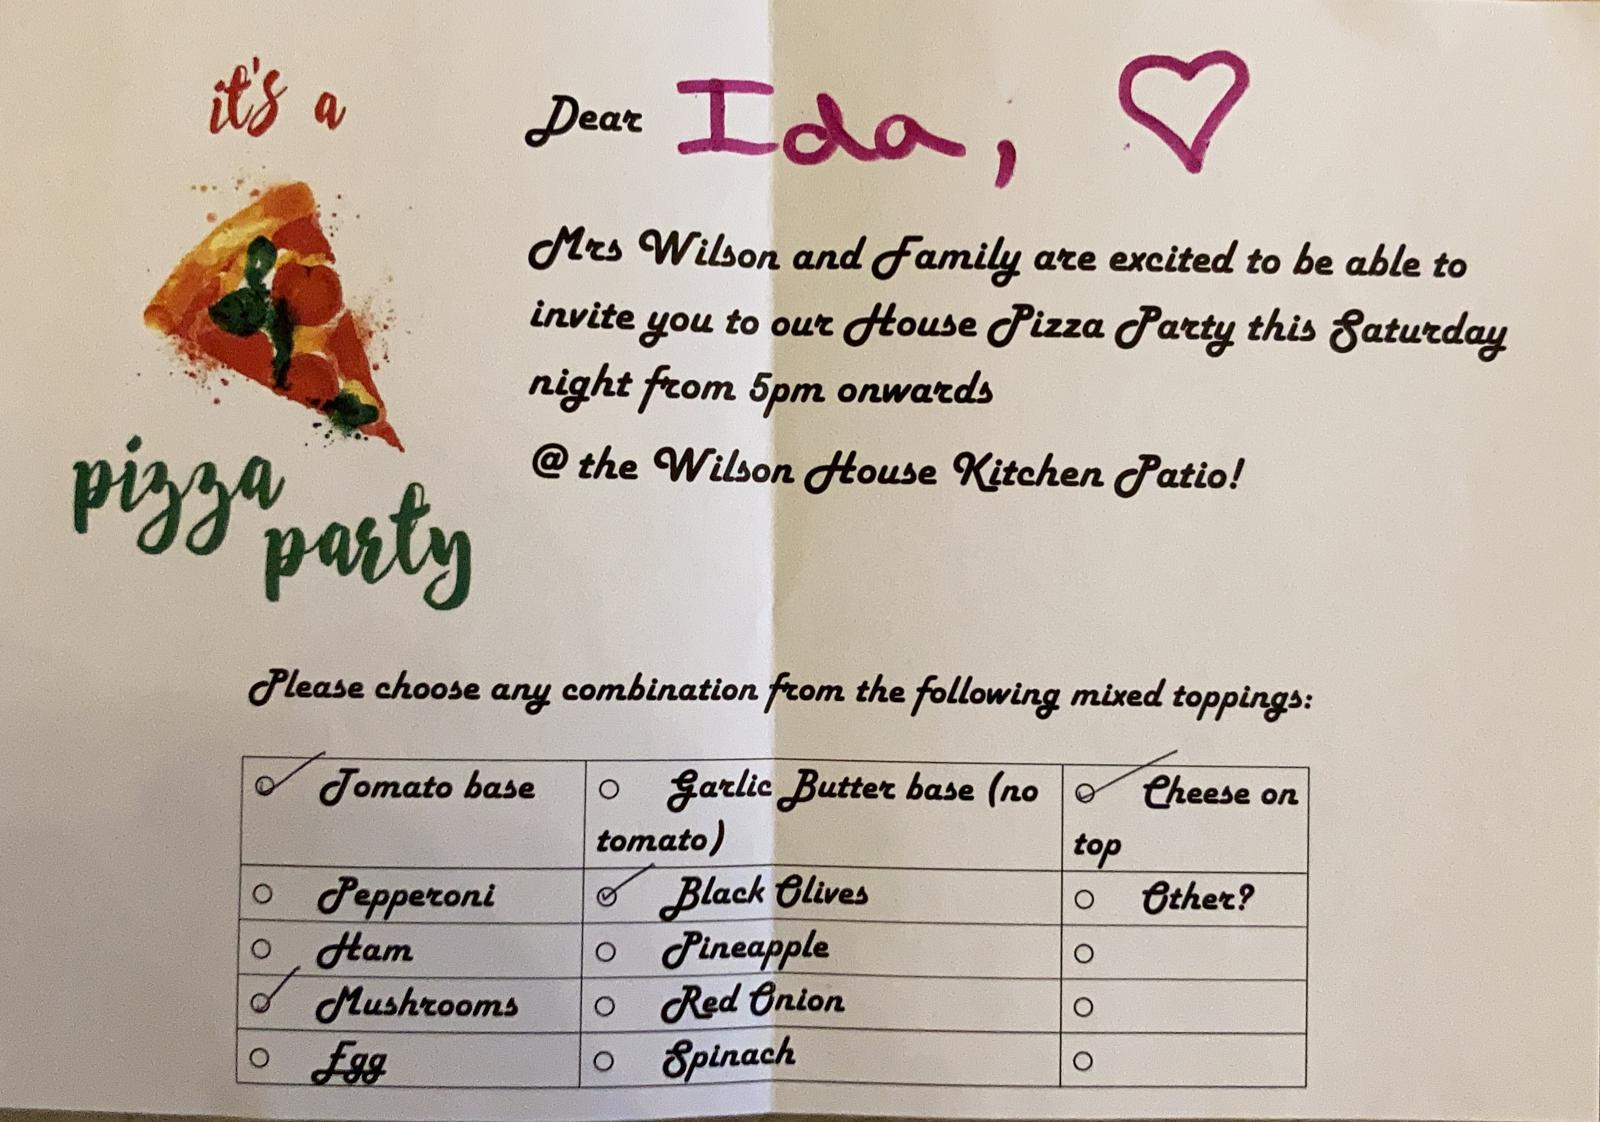 it's a
pizza
party
Dear Ida,
Mrs Wilson and Family are excited to be able to
invite you to our House Pizza Party this Saturday
night from 5pm onwards
@ the Wilson House Kitchen Patio!
Please choose any combination from the following mixed toppings:
Tomato base
Garlic Butter base (no
tomato)
Cheese on
top
Pepperoni
Black Olives
Other?
Ham
Pineapple
Mushrooms
Red Onion
Egg
Spinach